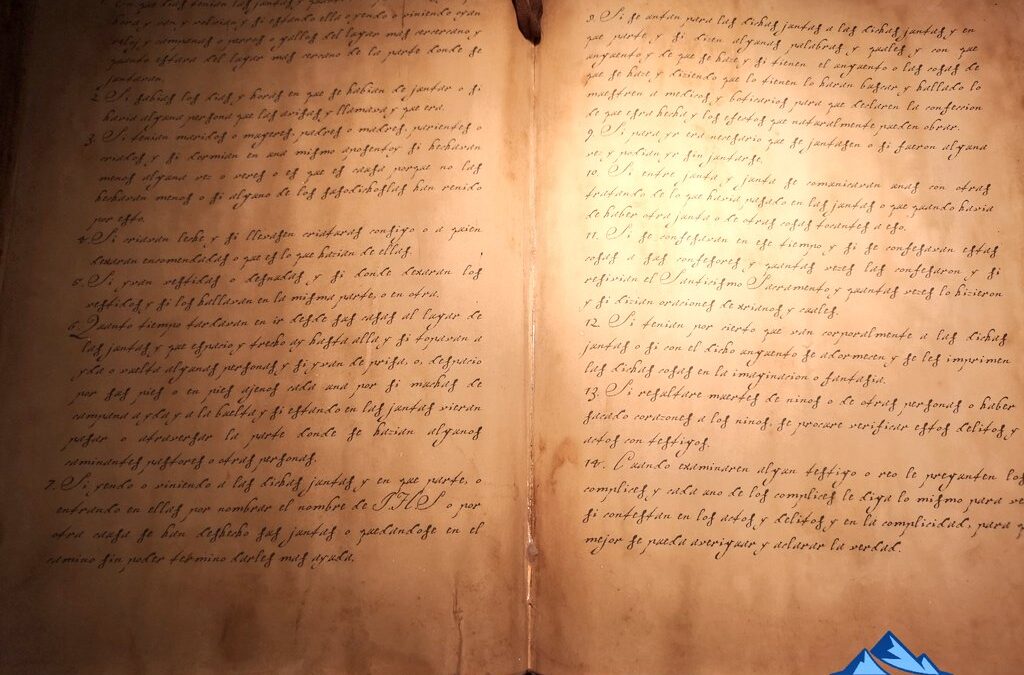 hora y van y volvian y si estando alla o yendo o viniendo oyan
relox y campanas o perros o gallos del lugar mas cercano y
quanto estara del lugar mas cercano de la parte donde se
juntaran.
2. Si sabian los dias y horas en que se habian de juntar o si
havia alguna persona que las avisas y llamara y que era.
3. Si tenian maridos o mugeres, padres o madres, parientes o
criados y si dormian en una mismo aposento y si hecharan
menos alguna vez o veces o es que es causa porque no las
hecharan menos o si alguno de los susodichos las han renido
por esto.
4. Si criavan leche y si llevasen criaturas consigo o a quien
dexaran encomendadas o que es lo que hazian de ellas.
5. Si yvan vestidas o desnudas, y si donde dexaran los
vestidos y si los hallaran en la misma parte, o en otra.
6. Quanto tiempo tardaran en ir desde sus casas al lugar de
las juntas y que espacio y trecho ay hasta alla y si toparan a
yda o vuelta algunas personas y si yvan de prisa, o, despacio
por sus pies o en pies ajenos cada una por si muchas de
campana a yda y a la buelta y si estando en las juntas vieran
pasar o atravessar la parte donde se hazian algunos
caminantes pastores o otras personas.
7. Si yendo o viniendo a las dichas juntas y en que parte, o
entrando en ellas por nombrar el nombre de IHS o por
otra causa se han deshecho sus juntas o quedandose en el
camino sin poder termino darles mas ayuda.
8. Si se untan para las dichas juntas a las dichas juntas y en
que parte, y si dizen algunas palabras y quales, y con que
unguento y de que se haze y si tienen el unguento o las cosas de
que se haze, y diziendo que lo tienen lo haran buscar y hallado lo
muestren a medicos y boticarios para que declaren la confeccion
de que esta hecha y los efectos que naturalmente pueden obrar.
9. Si para yr era necesario que se juntasen o si fueron alguna
vez y podian yr sin juntarse.
10. Si entre junta y junta se comunicavan unas con otras
tratando de lo que havia pasado en las juntas o que quando havia
de haber otra junta o de otras cosas tocantes a eso.
11. Si se confesavan en este tiempo y si se confesavan estas
cosas a sus confesores y quantas vezes las confesaron y si
resivian el Santicismo Sacramento y quantas vezes lo hizieron
y si dizian oraciones de xrianos y cuales.
12. Si tenian por cierto que van corporalmente a las dichas
juntas o si con el dicho unguento se adormecen y se les imprimen
las dichas cosas en la imaginacion o fantasia.
13. Si resultare muertes de ninos o de otras personas o haber
sacado corazones a los ninos, se procure verificar estos delitos y
actos con testigos.
14. Cuando examinaren algun testigo o reo le pregunten los
complices y cada uno de los complices le diga lo mismo para ve
si contestan en los actos y delitos y en la complicidad, para q
mejor se pueda averiguar y aclarar la verdad.